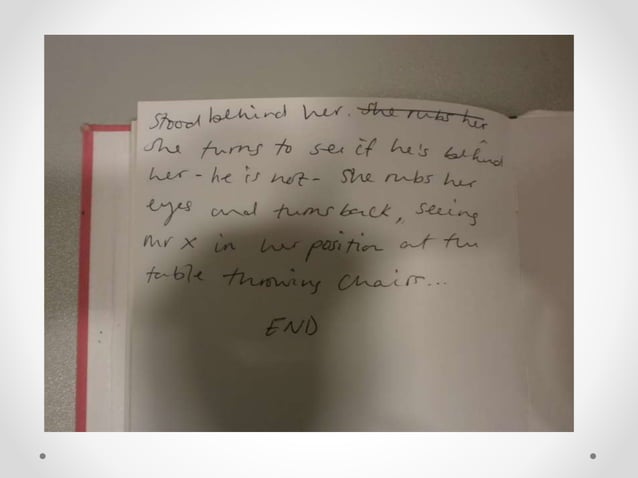 Stood behind her. ~~She rubs her~~
She turns to see if he's behind
her - he is not - She rubs her
eyes and turns back, seeing
Mr X in her position at the
table throwing chairs...
END